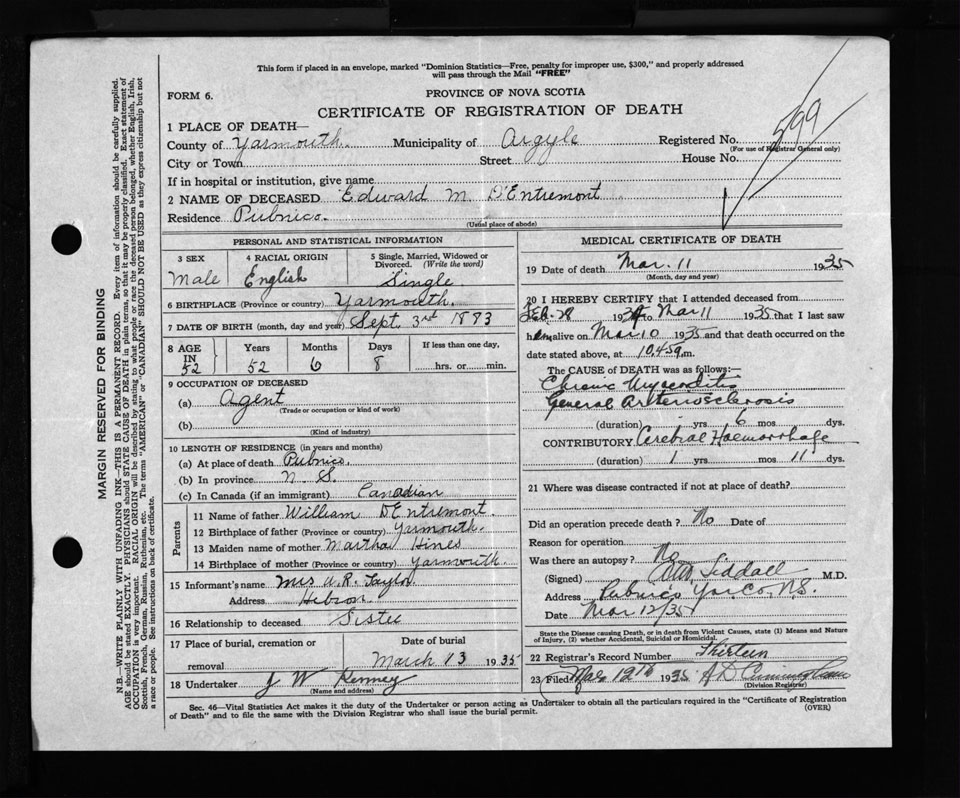 This form if placed in an envelope, marked "Dominion Statistics—Free, penalty for improper use, $300," and properly addressed
will pass through the Mail "FREE"
FORM 6.
PROVINCE OF NOVA SCOTIA
CERTIFICATE OF REGISTRATION OF DEATH
1 PLACE OF DEATH—
County of Yarmouth. Municipality of Argyle Registered No. 599
(For use of Registrar General only)
City or Town Street House No.
If in hospital or institution, give name
2 NAME OF DECEASED Edward M. D'Entremont
Residence Pubnico.
(Usual place of abode)
PERSONAL AND STATISTICAL INFORMATION
3 SEX 4 RACIAL ORIGIN 5 Single, Married, Widowed or
Divorced. (Write the word)
Male English Single
6 BIRTHPLACE (Province or country) Yarmouth.
7 DATE OF BIRTH (month, day and year) Sept. 3rd 1883
8 AGE Years Months Days If less than one day,
IN
52 52 6 8 hrs. or min.
9 OCCUPATION OF DECEASED
(a) Agent
(Trade or occupation or kind of work)
(b)
(Kind of industry)
10 LENGTH OF RESIDENCE (in years and months)
(a) At place of death Pubnico.
(b) In province N. S.
(c) In Canada (if an immigrant) Canadian
Parents
11 Name of father William D'Entremont.
12 Birthplace of father (Province or country) Yarmouth.
13 Maiden name of mother Martha Hines
14 Birthplace of mother (Province or country) Yarmouth.
15 Informant's name Mrs A. R. Taylor.
Address Hebron.
16 Relationship to deceased Sister
17 Place of burial, cremation or Date of burial
removal March 13 1935
18 Undertaker J W Kenney
(Name and address)
MEDICAL CERTIFICATE OF DEATH
19 Date of death Mar. 11 1935
(Month, day and year)
20 I HEREBY CERTIFY that I attended deceased from
Feb. 28 1934 to Mar 11 1935 that I last saw
him alive on Mar 10 1935 and that death occurred on the
date stated above, at 10.45 m.
The CAUSE of DEATH was as follows:—
Chronic Myocarditis
General Arteriosclerosis
(duration) yrs 6 mos dys.
CONTRIBUTORY Cerebral Haemorrhage
(duration) 1 yrs mos 11 dys.
21 Where was disease contracted if not at place of death?
Did an operation precede death? No Date of
Reason for operation.
Was there an autopsy? No
(Signed) Siddall M.D.
Address Pubnico Yar. Co. N.S.
Date Mar 12/35
State the Disease causing Death, or in death from Violent Causes, state (1) Means and Nature
of Injury, (2) whether Accidental, Suicidal or Homicidal.
22 Registrar's Record Number Thirteen
23 Filed Mar 12th 1935 A D Cunningham
(Division Registrar)
Sec. 46—Vital Statistics Act makes it the duty of the Undertaker or person acting as Undertaker to obtain all the particulars required in the "Certificate of Registration
of Death" and to file the same with the Division Registrar who shall issue the burial permit. (OVER)
MARGIN RESERVED FOR BINDING
N.B.—WRITE PLAINLY WITH UNFADING INK—THIS IS A PERMANENT RECORD. Every item of information should be carefully supplied.
AGE should be stated EXACTLY. PHYSICIANS should STATE CAUSE OF DEATH in plain terms, so that it may be properly classified. Exact statement of
OCCUPATION is very important. RACIAL ORIGIN will be described by stating to what people or race the deceased person belonged, whether English, Irish,
Scottish, French, German, Russian, Ruthenian, etc. The terms "AMERICAN" or "CANADIAN" SHOULD NOT BE USED as they express citizenship but not
a race or people. See instructions on back of certificate.